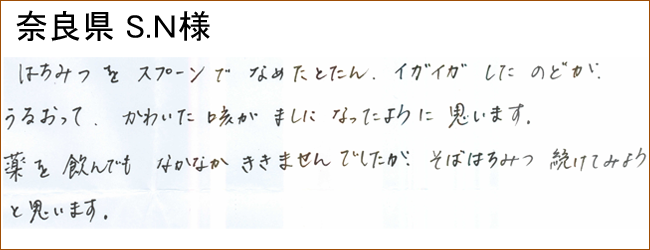 奈良県 S.N様
はちみつを スプーンで なめたとたん、イガイガ したのどが、
うるおって、かわいた咳が ましに なったように 思います。
薬を 飲んでも なかなか ききませんでしたが、そばはちみつ 続けてみよう
と思います。